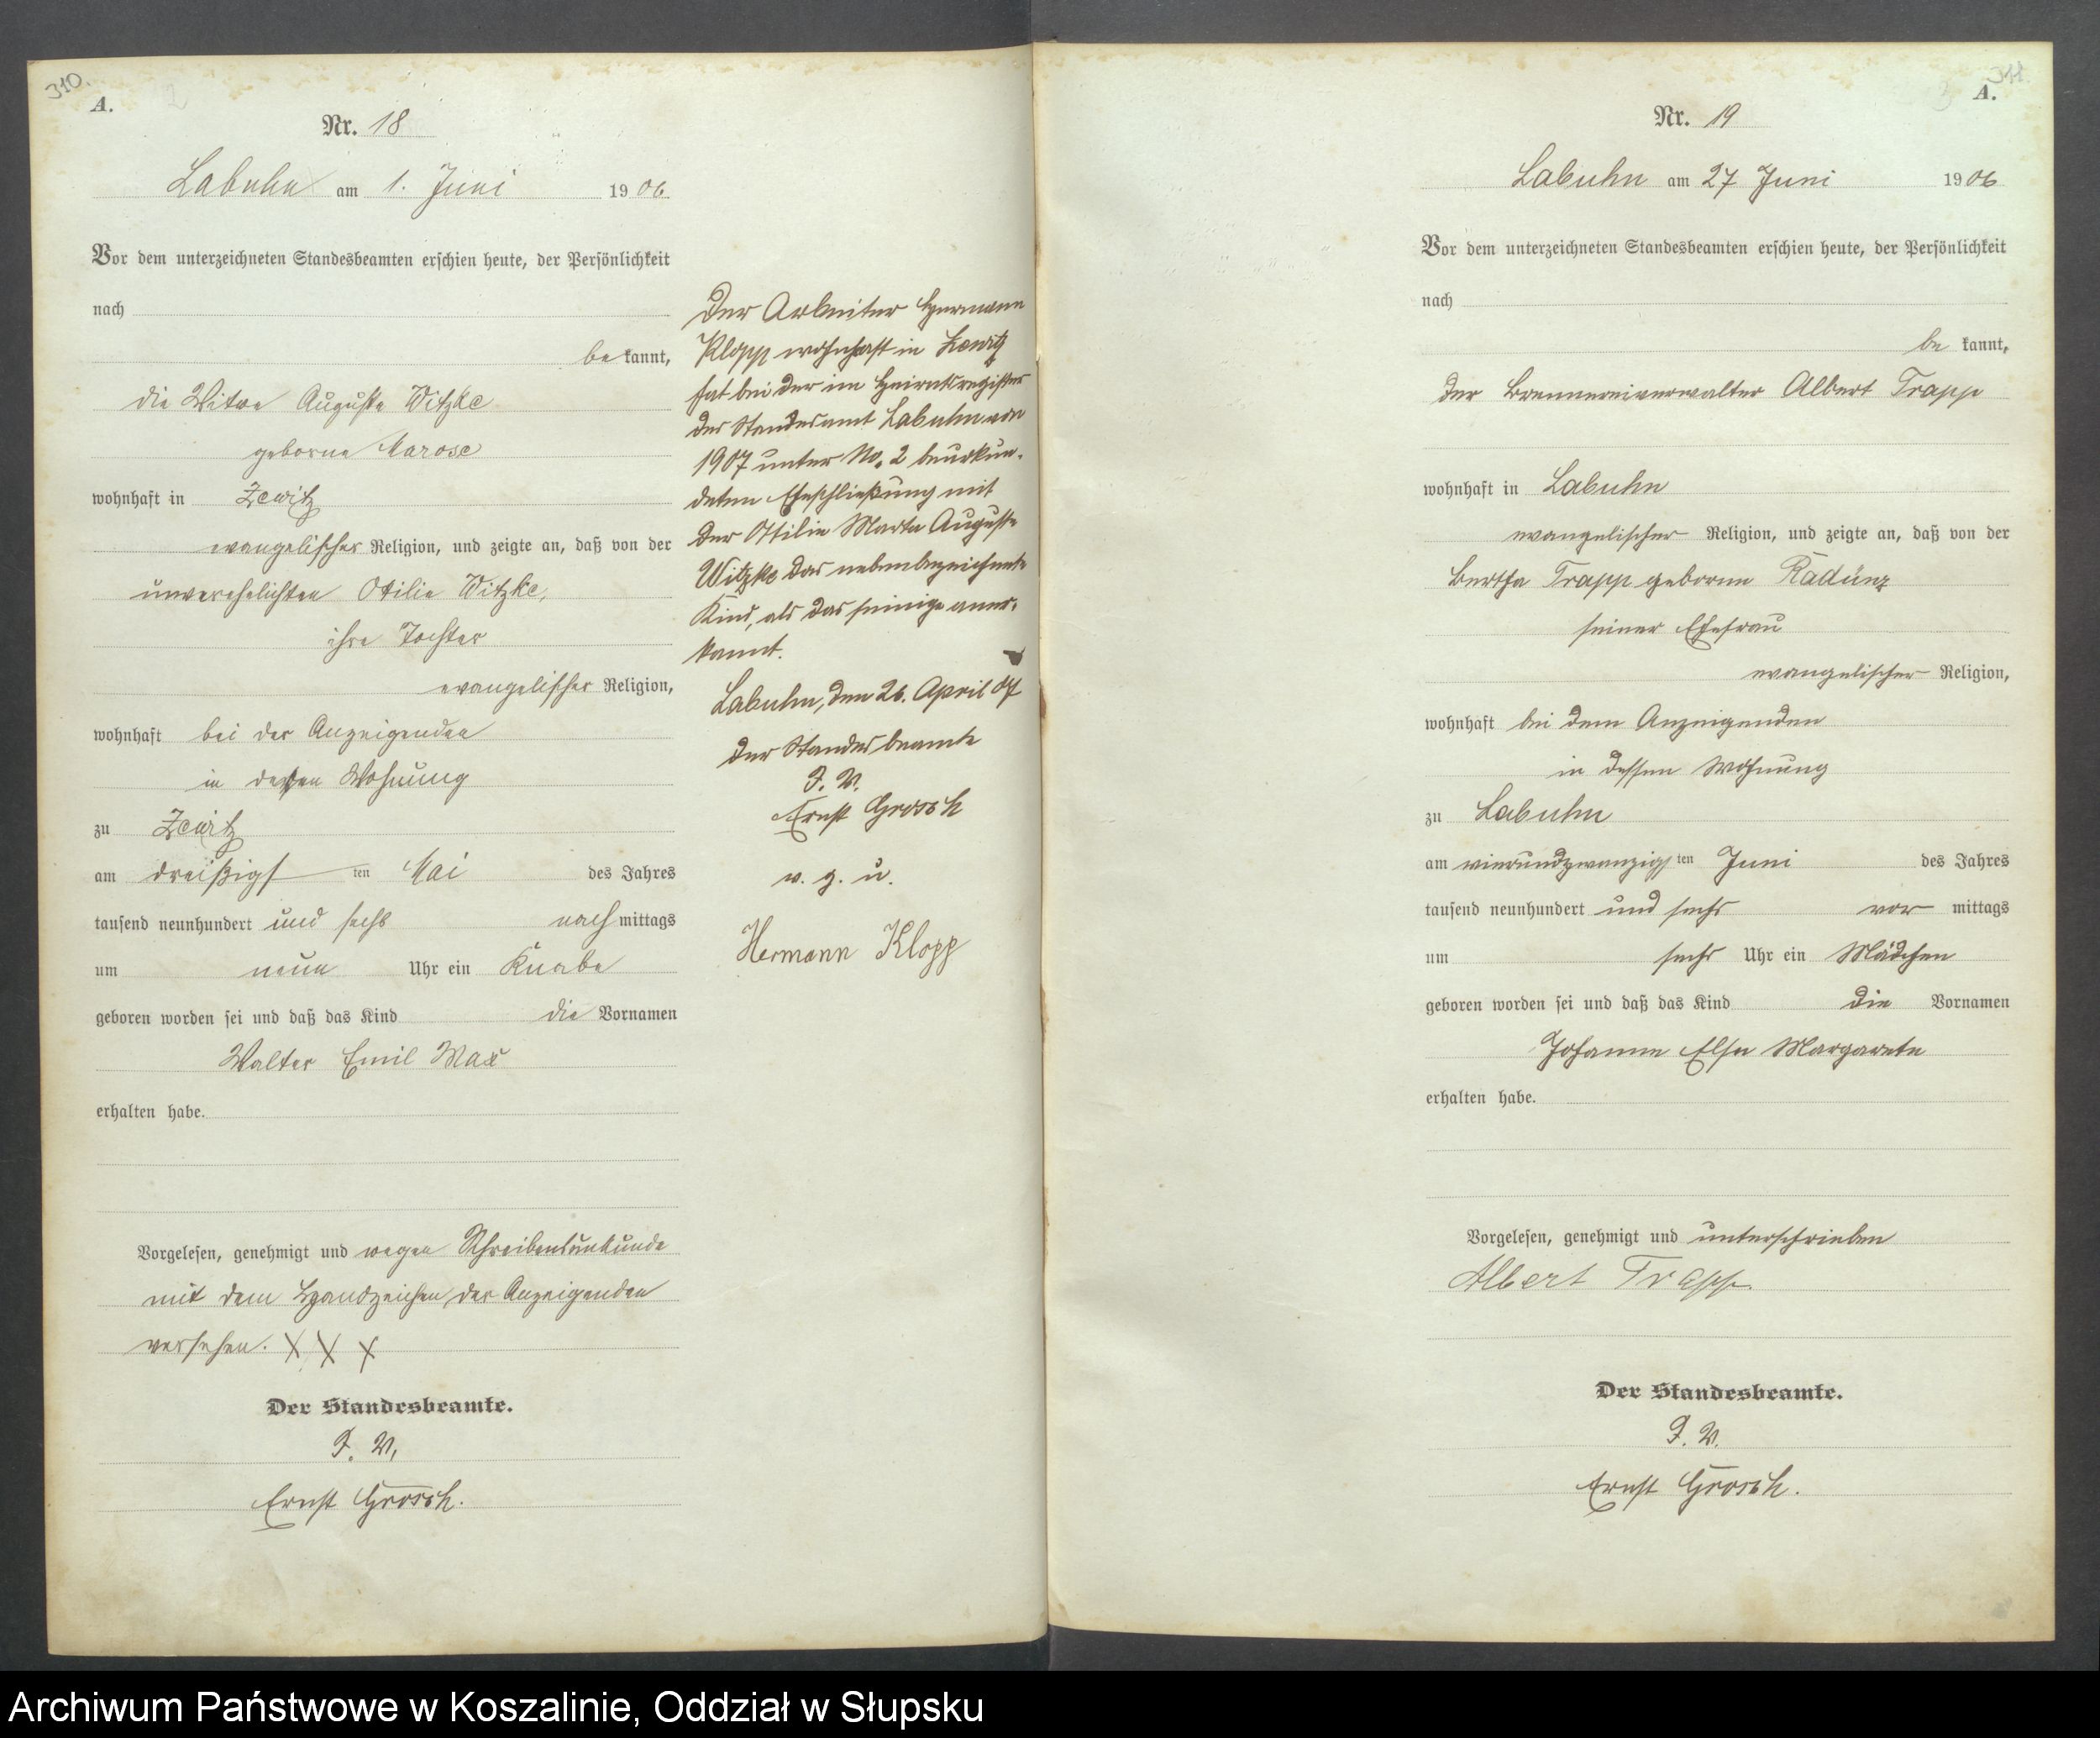 310.
A.
2
Nr. 18
Labuhn am 1. Juni 1906
Vor dem unterzeichneten Standesbeamten erschien heute, der Persönlichkeit
nach
be kannt,
die Witwe Auguste Witzke
geborne Marose
wohnhaft in Zewitz
evangelischer Religion, und zeigte an, daß von der
unverehelichten Otilie Witzke,
ihre Tochter
evangelischer Religion,
wohnhaft bei der Anzeigenden
in dessen Wohnung
zu Zewitz
am dreißigsten Mai des Jahres
tausend neunhundert und sechs nachmittags
um neun Uhr ein Knabe
geboren worden sei und daß das Kind die Vornamen
Walter Emil Max
erhalten habe.
Vorgelesen, genehmigt und wegen Schreibensunkunde
mit dem Handzeichen der Anzeigenden
versehen. X X X
Der Standesbeamte.
J. V.
Ernst Grosch.
Der Arbeiter Hermann
Klopp wohnhaft in Zewitz
hat bei der im Heiratsregister
des Standesamt Labuhn von
1907 unter No. 2 beurkun-
deten Eheschließung mit
der Ottilie Marta Auguste
Witzke das nebenbezeichnete
Kind, als das seinige aner-
kannt.
Labuhn, den 26. April 07
Der Standesbeamte
J. V.
Ernst Grosch
v. g. u.
Hermann Klopp
311.
A.
3
Nr. 19
Labuhn am 27 Juni 1906
Vor dem unterzeichneten Standesbeamten erschien heute, der Persönlichkeit
nach
be kannt,
der Brennereiverwalter Albert Trapp
wohnhaft in Labuhn
evangelischer Religion, und zeigte an, daß von der
Bertha Trapp geborne Radünz
seiner Ehefrau
evangelischer Religion,
wohnhaft bei dem Anzeigenden
in dessen Wohnung
zu Labuhn
am vierundzwanzigsten Juni des Jahres
tausend neunhundert und sechs vor mittags
um sechs Uhr ein Mädchen
geboren worden sei und daß das Kind die Vornamen
Johanne Else Margarete
erhalten habe.
Vorgelesen, genehmigt und unterschrieben
Albert Trapp.
Der Standesbeamte.
J. V.
Ernst Grosch.
Archiwum Państwowe w Koszalinie, Oddział w Słupsku